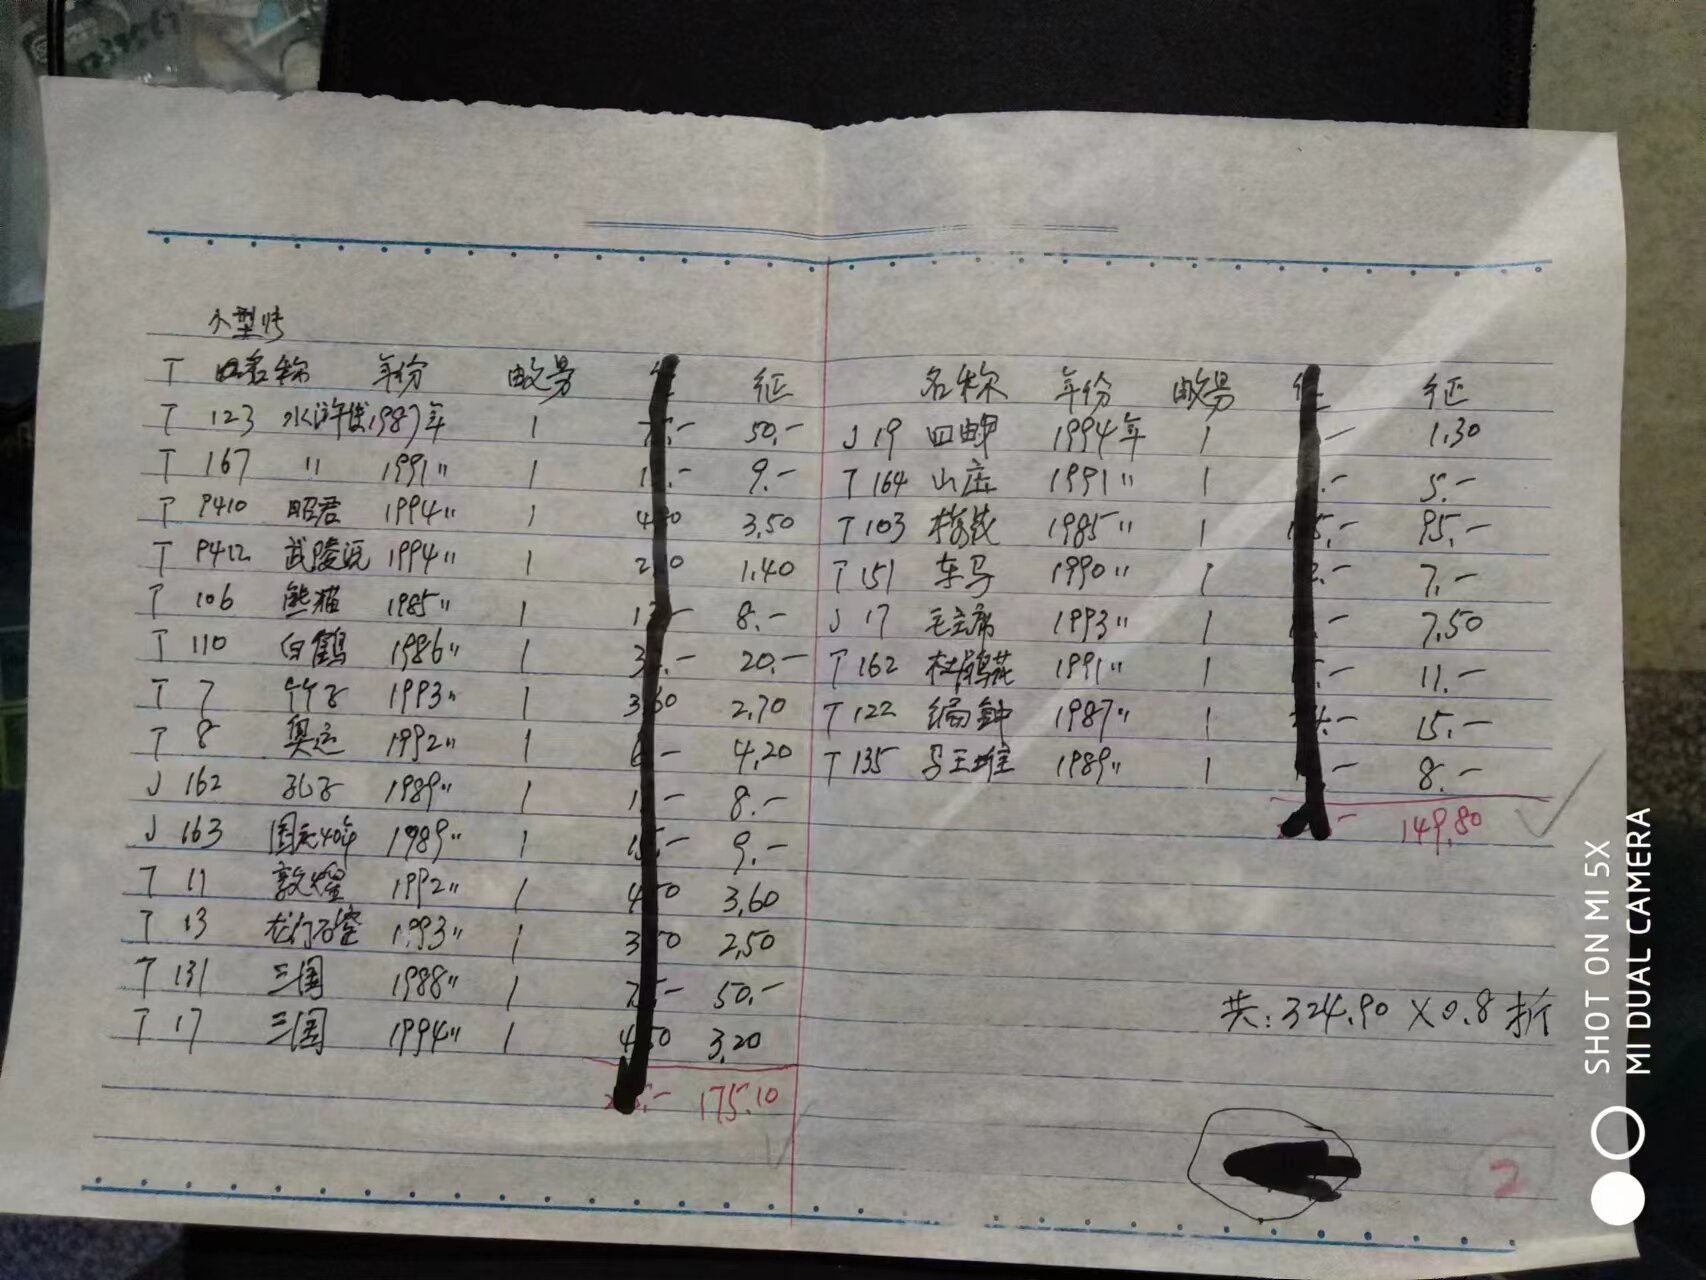 小型张
T 名称 年份 枚号 征
T 123 水浒传 1987年 1 50.-
T 167 〃 1991〃 1 9.-
T 9410 昭君 1994〃 1 3.50
T 9412 武陵源 1994〃 1 1.40
T 106 熊猫 1985〃 1 8.-
T 110 白鹤 1986〃 1 20.-
T 7 竹子 1993〃 1 2.70
T 8 奥运 1992〃 1 4.20
J 162 孔子 1989〃 1 8.-
J 163 国庆40年 1989〃 1 9.-
T 11 敦煌 1992〃 1 3.60
T 13 龙门石窟 1993〃 1 2.50
T 131 三国 1988〃 1 50.-
T 17 三国 1994〃 1 3.20
175.10
名称 年份 枚号 征
J 19 四邮 1994年 1 1.30
T 164 山庄 1991〃 1 5.-
T 103 梅花 1985〃 1 95.-
T 151 车马 1990〃 1 7.-
J 17 毛主席 1993〃 1 7.50
T 162 杜鹃花 1991〃 1 11.-
T 122 编钟 1987〃 1 15.-
T 135 马王堆 1989〃 1 8.-
149.80
共:324.90×0.8折
2
SHOT ON MI 5X
MI DUAL CAMERA